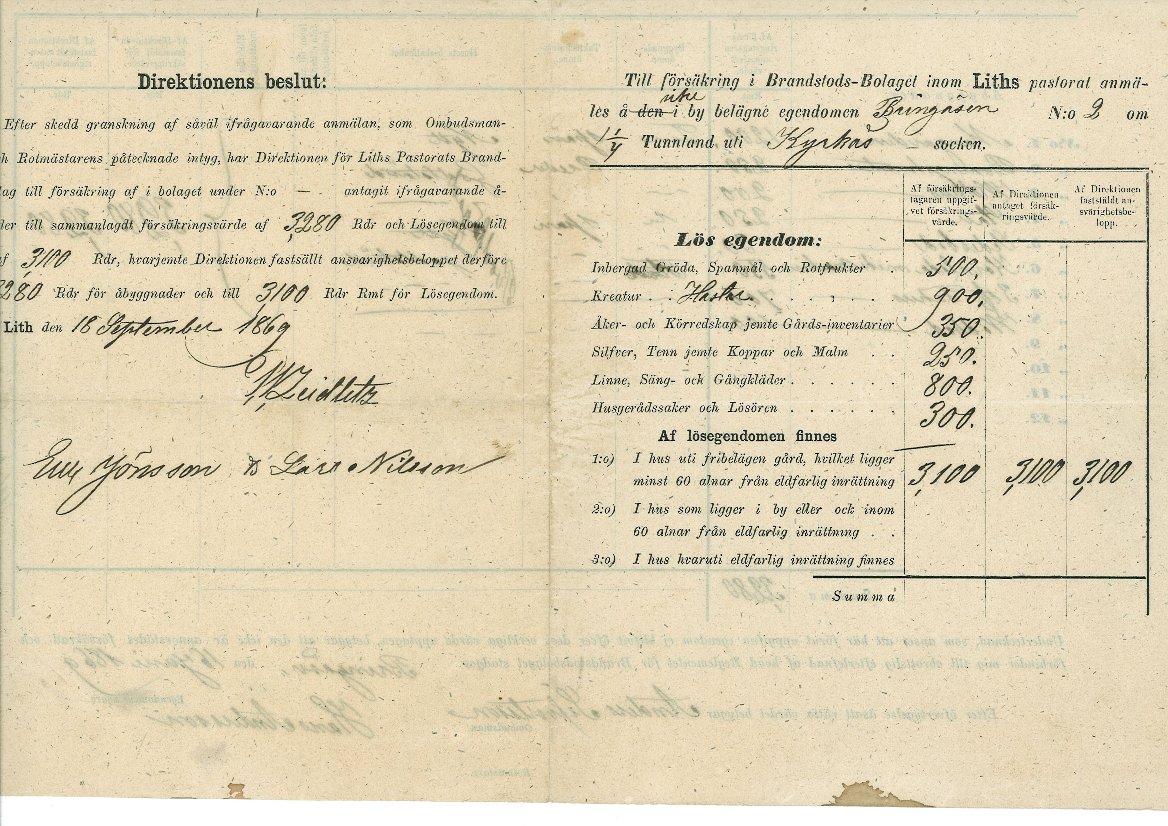 Direktionens beslut:
Efter skedd granskning af såväl ifrågavarande anmälan, som Ombudsman-
h Rotmästarens påtecknade intyg, har Direktionen för Liths Pastorats Brand-
lag till försäkring af i bolaget under N:o — . antagit ifrågavarande å-
der till sammanlagdt försäkringsvärde af 3,280 Rdr och Lösegendom till
af 3,100 Rdr, hvarjemte Direktionen fastsällt ansvarighetsbeloppet derföre
3280 Rdr för åbyggnader och till 3100 Rdr Rmt för Lösegendom.
Lith den 18 September 1869
W Zeidlitz
Erik Jönsson Lars Nilsson
Till försäkring i Brandstods-Bolaget inom Liths pastorat anmä-
utu
les å den i by belägne egendomen Bringåsen N:o 2 om
1 1/4 Tunnland, uti Kyrkås socken.
Af försäkrings-
tagaren uppgif-
vet försäkrings-
värde.
Af Direktionen
antaget försäk-
ringsvärde.
Af Direktionen
faststäldt an-
svarighetsbe-
lopp.
Lös egendom:
Inbergad Gröda, Spannmål och Rotfrukter 500,
Kreatur . . . . 900,
Åker- och Körredskap jemte Gårds-inventarier 350.
Silfver, Tenn jemte Koppar och Malm . . 250.
Linne, Säng- och Gångkläder . . . . . . 800.
Husgerådssaker och Lösören . . . . . . 300.
Af lösegendomen finnes
1:o) I hus uti fribelägen gård, hvilket ligger
minst 60 alnar från eldfarlig inrättning 3,100 3,100 3,100
2:o) I hus som ligger i by eller ock inom
60 alnar från eldfarlig inrättning . .
3:o) I hus hvaruti eldfarlig inrättning finnes
Summa